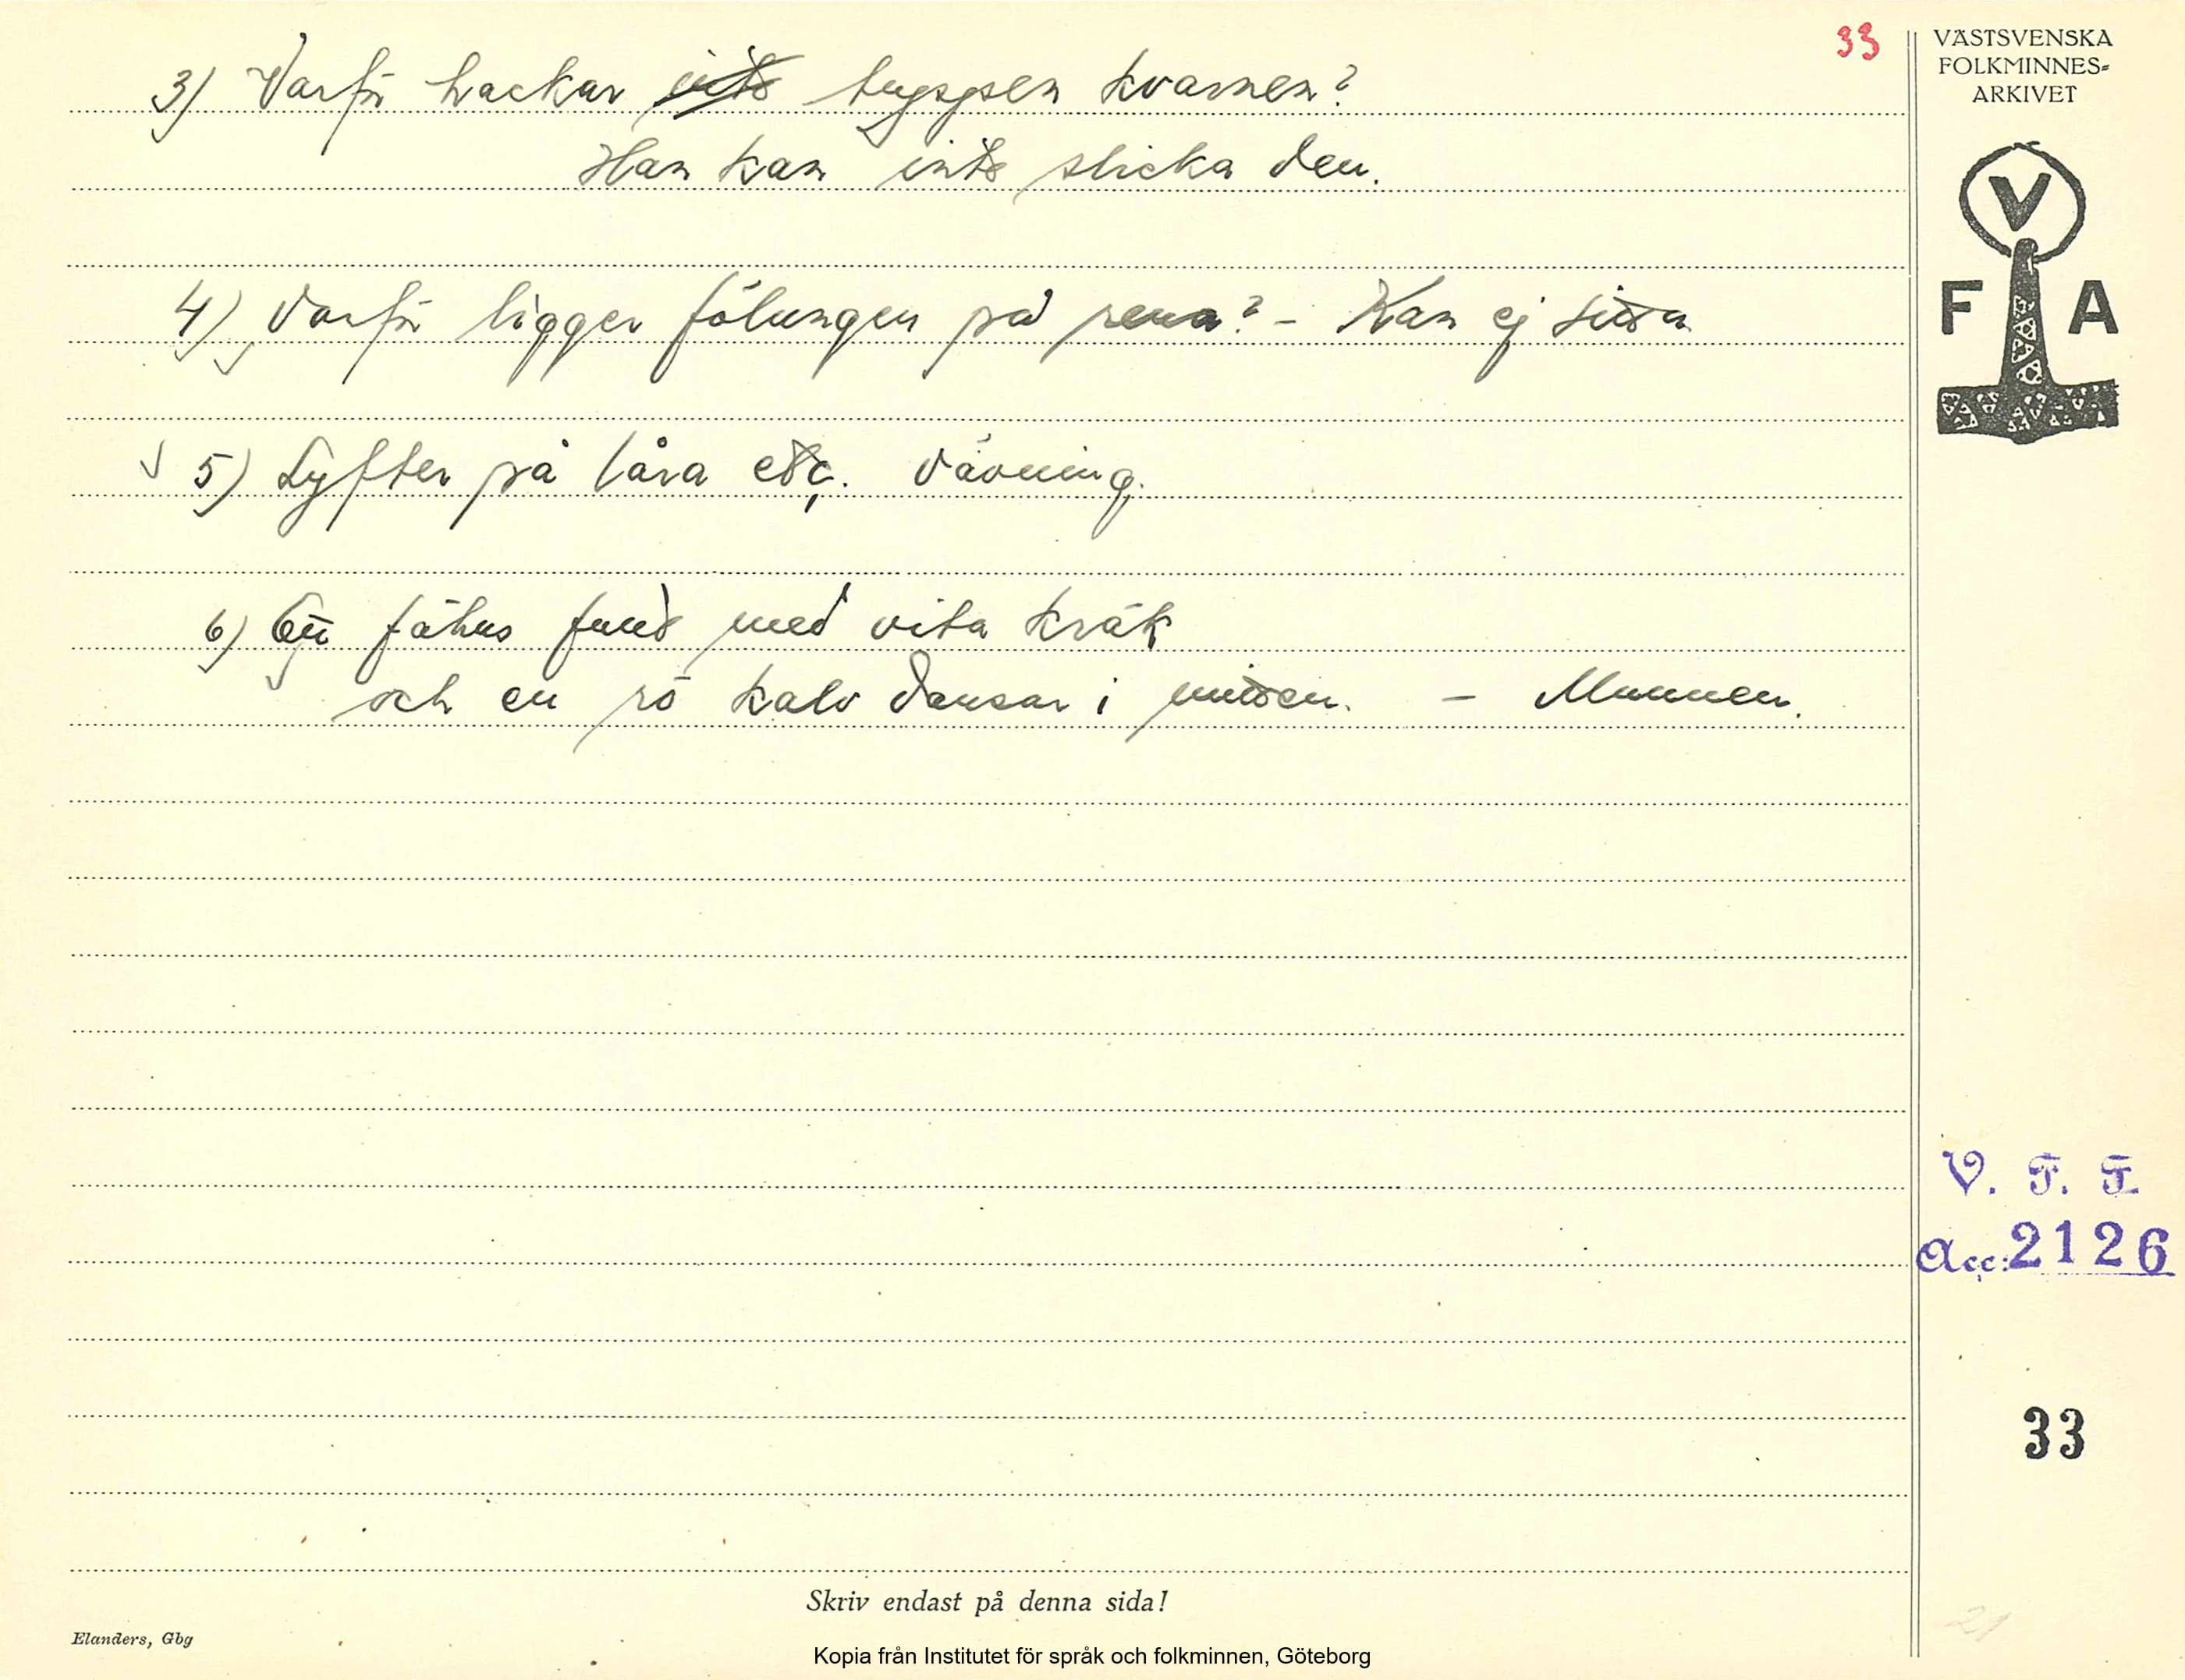 33
VÄSTSVENSKA
FOLKMINNES-
ARKIVET
3) Varför hackar inte tuppen kvarnen?
Han kan inte slicka den.
V
F A
4) Varför ligger fölungen på rena? - Kan ej sitta
√ 5) Lyfter på låra etc. Vävning.
6) fähus fullt med vita kräk
och en rö kalv dansar i mitten. - Munnen.
V. F. F.
Acc: 2126
33
Skriv endast på denna sida!
Elanders, Gbg
21
Kopia från Institutet för språk och folkminnen, Göteborg